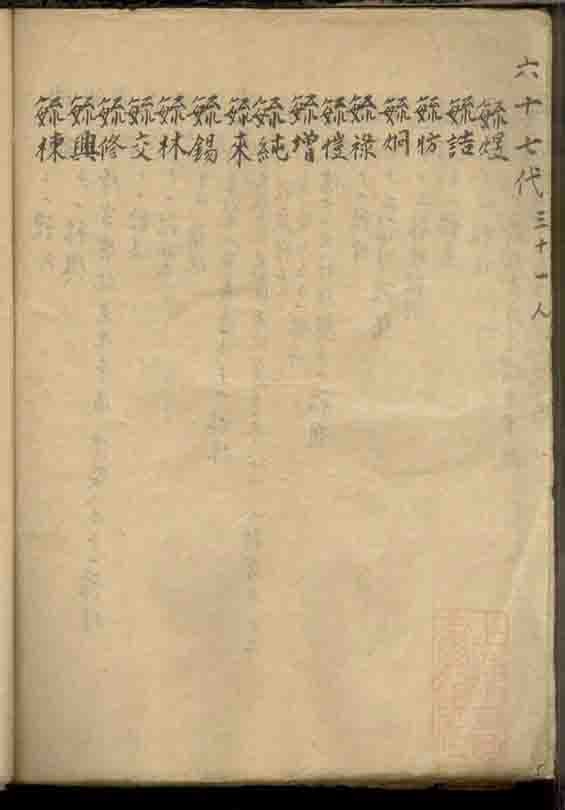 六十七代 三十一人
毓
毓詰
毓
毓炯
毓祿
毓愷
毓增
毓純
毓來
毓錫
毓林
毓交
毓修
毓興
毓棟